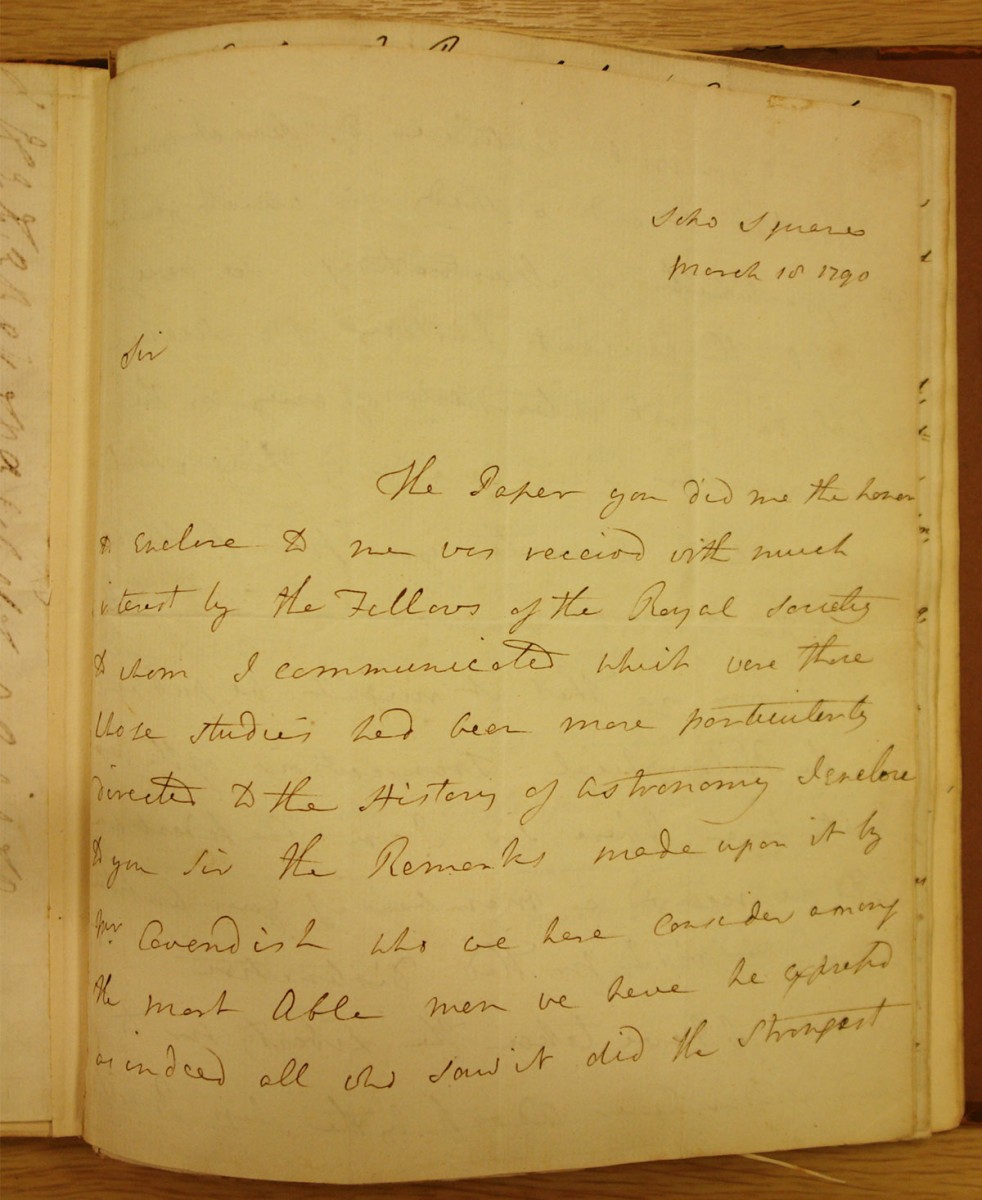 Soho Square
March 18 1790
Sir
The Paper you did me the honor
to Enclose to me was receivd with much
interest by the Fellows of the Royal Society
to whom I communicated which were those
whose studies had been more particularly
directed to the History of Astronomy I Enclose
to you Sir the Remarks made upon it by
Mr Cavendish who we here consider among
the most Able men we have he expressd
as indeed all who saw it did the Strongest